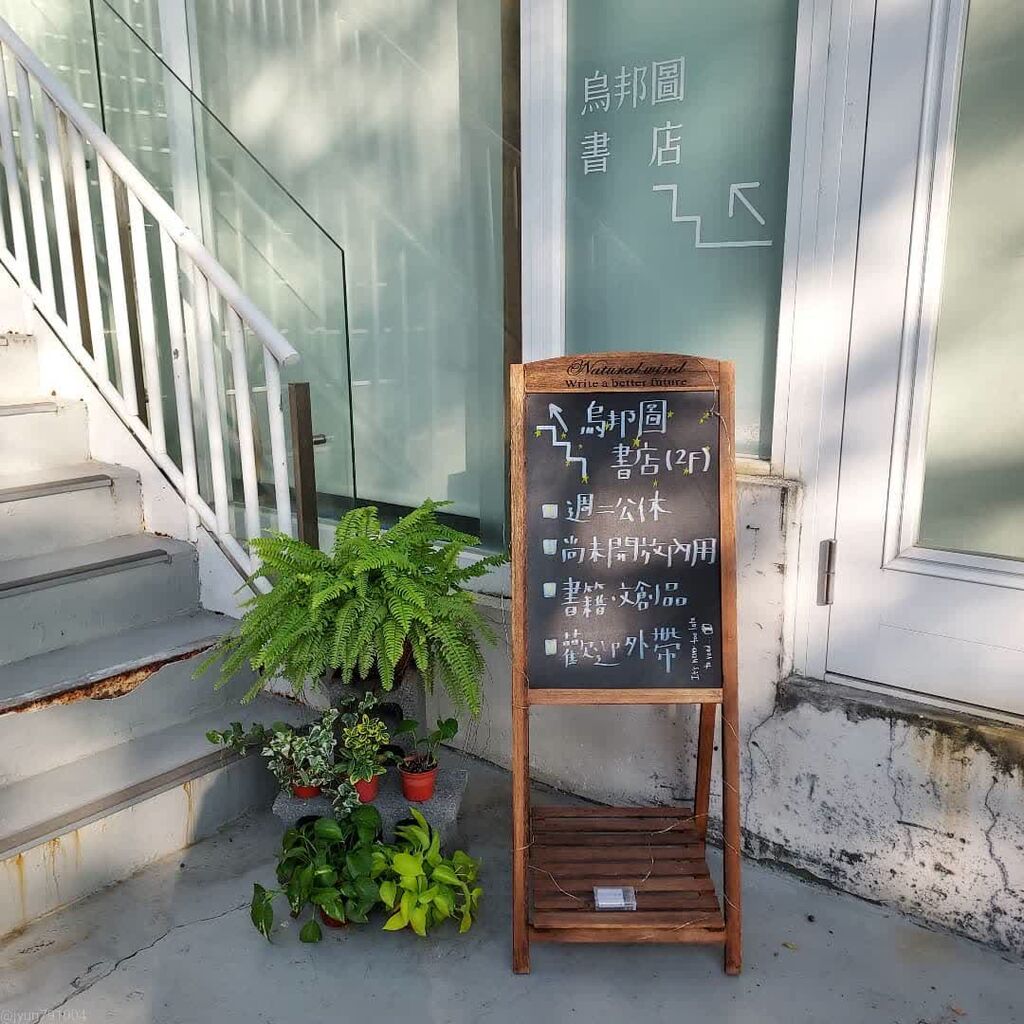 烏邦圖
書 店
Natural wind
Write a better future
烏邦圖
書店(2F)
週二公休
尚未開放內用
書籍·文創品
歡迎外帶
@jyun791004